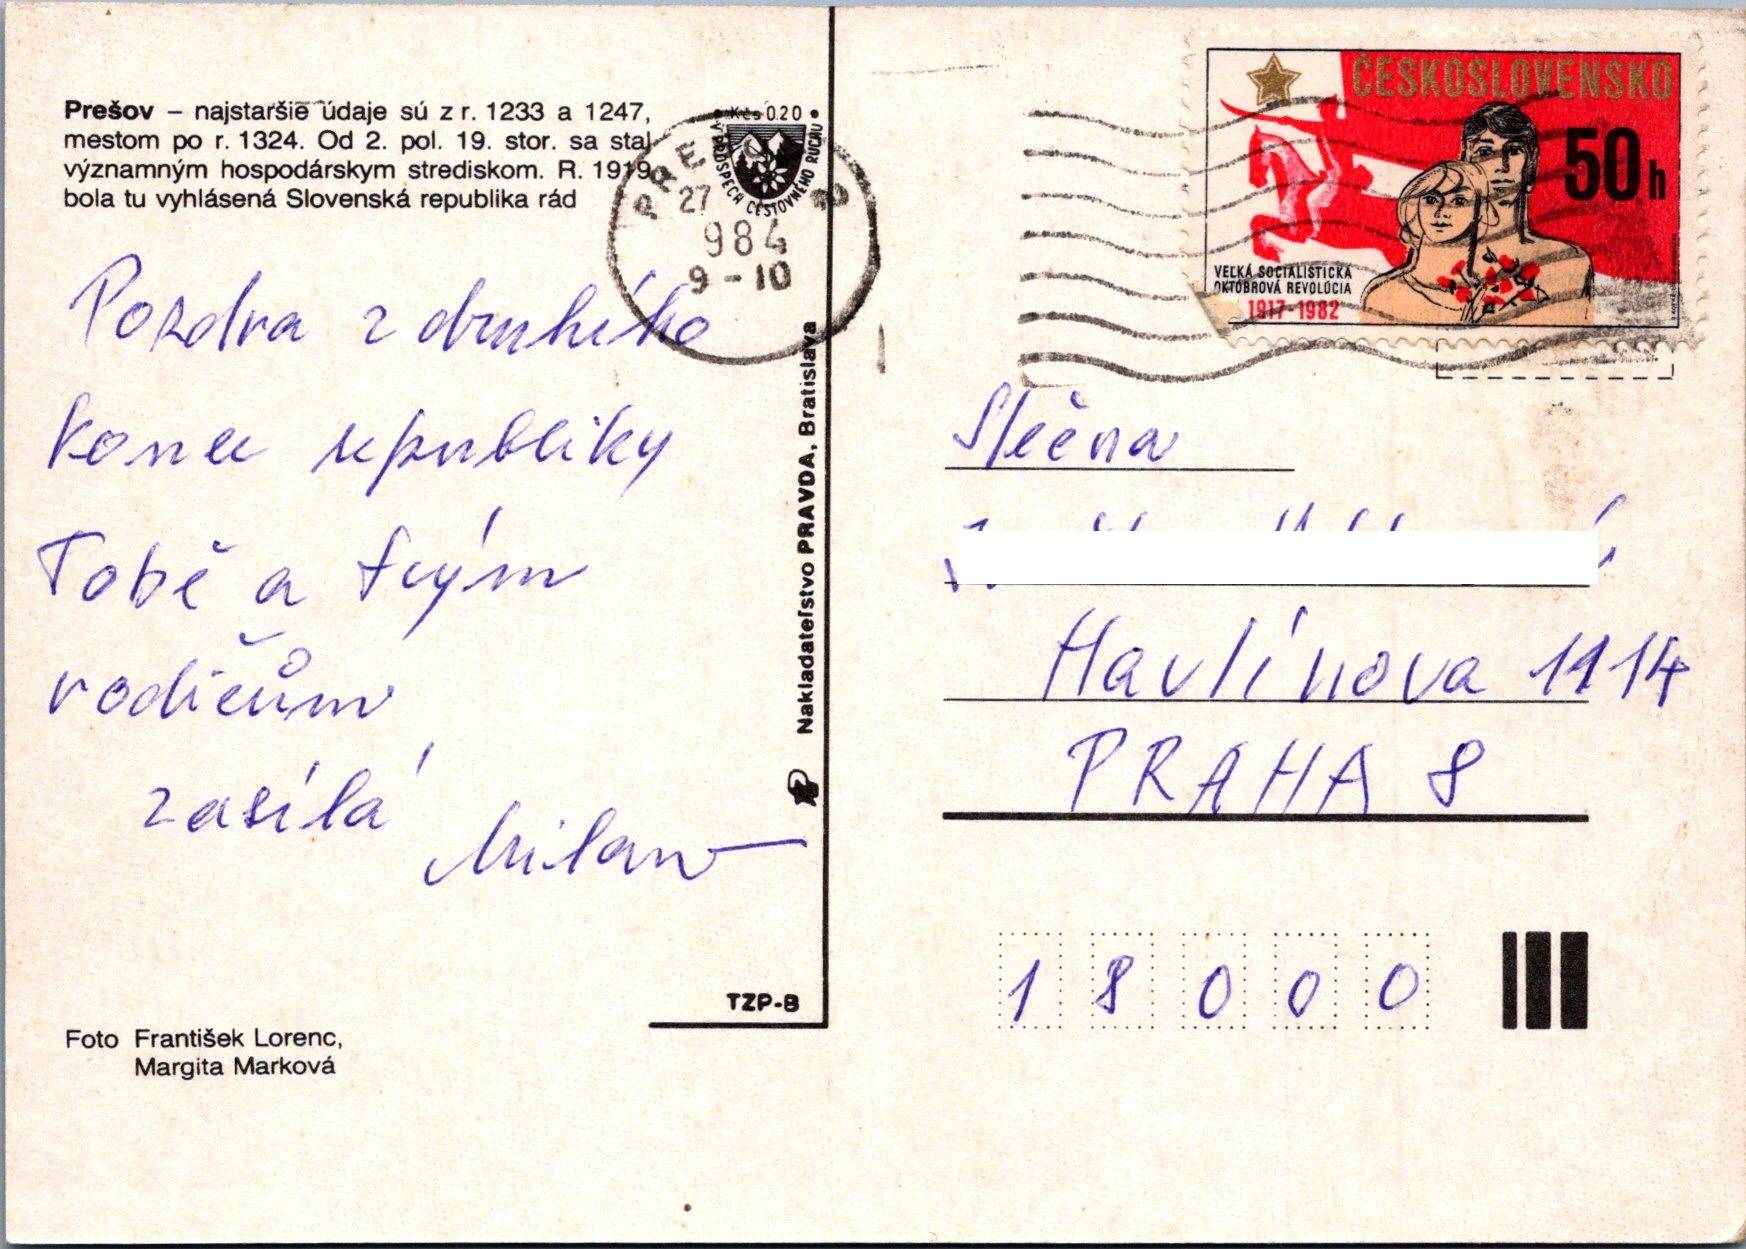 Prešov – najstaršie údaje sú z r. 1233 a 1247,
mestom po r. 1324. Od 2. pol. 19. stor. sa stal
významným hospodárskym strediskom. R. 1919
bola tu vyhlásená Slovenská republika rád
Pozdrav z druhého
konce republiky
Tobě a tvým
rodičům
zasílá
Milan
Foto František Lorenc,
Margita Marková
TZP-8
Nakladateľstvo PRAVDA, Bratislava
Kčs 0.20
V PROSPECH CESTOVNÉHO RUCHU
27
984
9-10
ČESKOSLOVENSKO
50h
VEĽKÁ SOCIALISTICKÁ
OKTÓBROVÁ REVOLÚCIA
1917-1982
Slečna
Havlínova 1114
PRAHA 8
18000